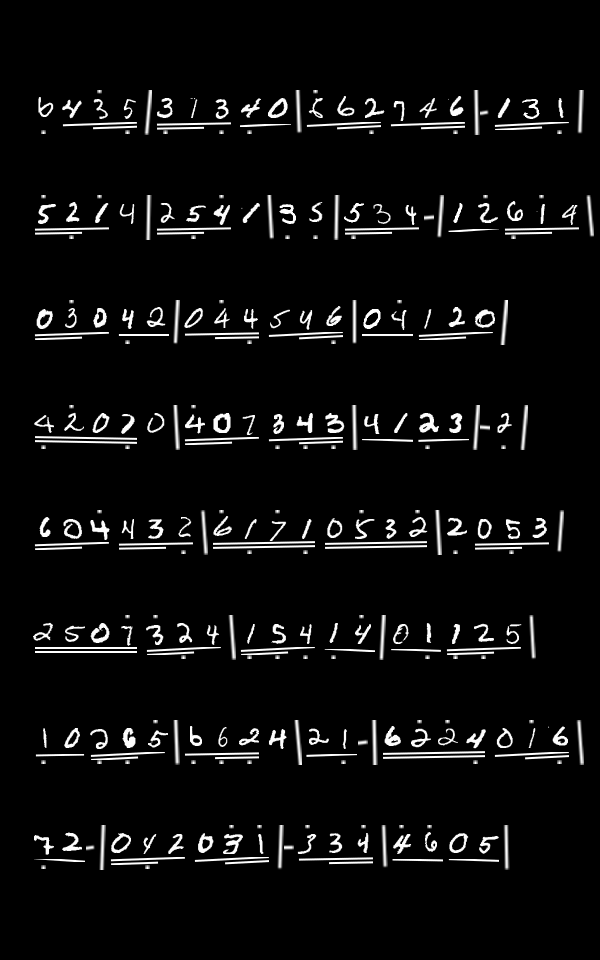 6435|31340|5627466|-131|
5214|2541|35|534-|12614|
03042|044546|04120|
42070|407343|4123|-2|
604432|61710532|2053|
2507324|15414|01125|
10265|6624|21-|6224016|
72-|042031|-334|4605|